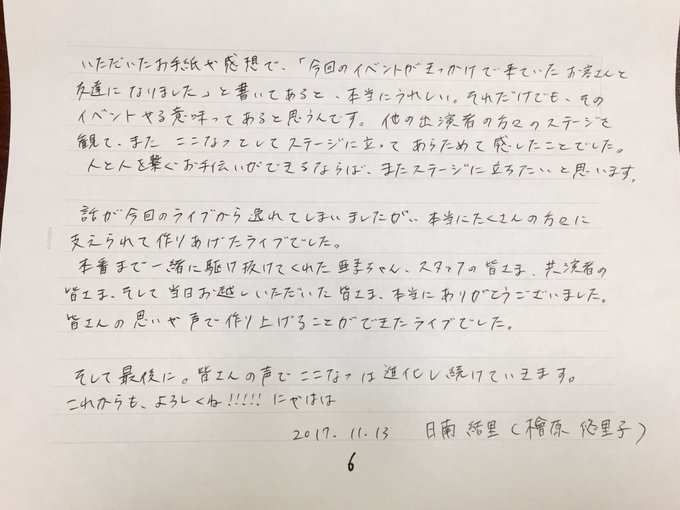 いただいたお手紙や感想で、「今回のイベントがきっかけで来ていたお客さんと
友達になりました」と書いてあると、本当にうれしい。それだけでも、その
イベントやる意味ってあると思うんです。他の出演者の方々のステージを
観て、また ここなつとしてステージに立って あらためて感じたことでした。
人と人を繋ぐお手伝いができるならば、またステージに立ちたいと思います。
話が今回のライブから逸れてしまいましたが、本当にたくさんの方々に
支えられて作りあげたライブでした。
本番まで一緒に駆け抜けてくれた亜季ちゃん、スタッフの皆さま、共演者の
皆さま、そして当日お越しいただいた皆さま、本当にありがとうございました。
皆さんの思いや声で作り上げることができたライブでした。
そして最後に。皆さんの声で ここなつは進化し続けていきます。
これからも、よろしくね!!!!! にゃはは
2017. 11. 13 日南 結里(檜原 悠里子)
6